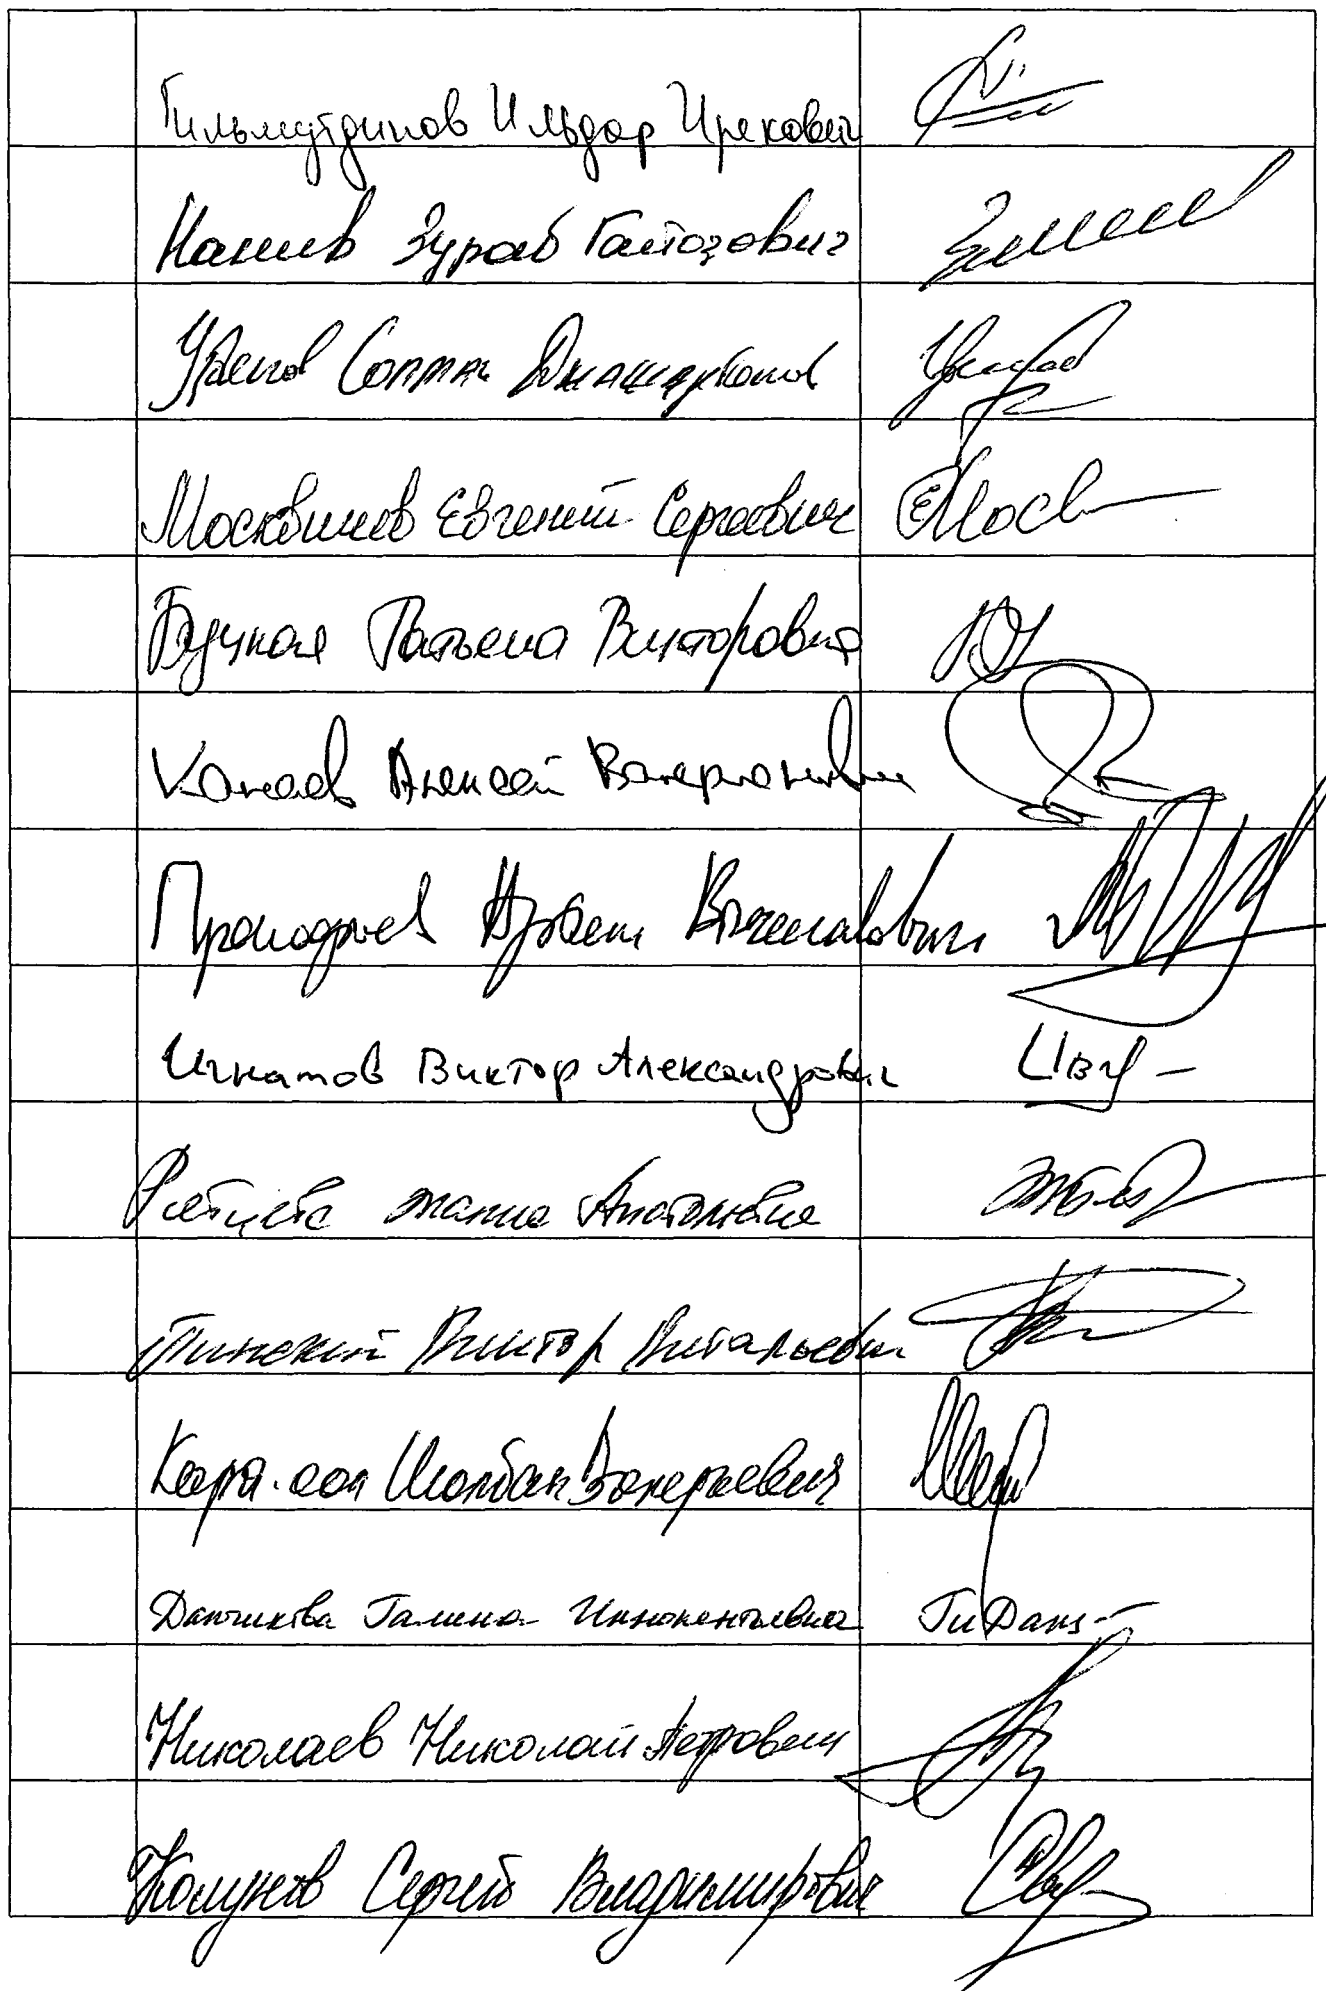 Гильмутдинов Ильдар Ирекович
Макиев Зураб Гайозович
Узденов Солтан
Москвичев Евгений Сергеевич ЕМосв
Буцкая Татьяна Викторовна
Канаев Алексей Валерианович
Прокофьев Артем Вячеславович
Игнатов Виктор Александрович
Рябцева Жанна Анатольевна
Пинский Виктор Витальевич
Кара-оол Шолбан Валерьевич
Данчикова Галина Иннокентьевна
Николаев Николай Петрович
Колунов Сергей Владимирович